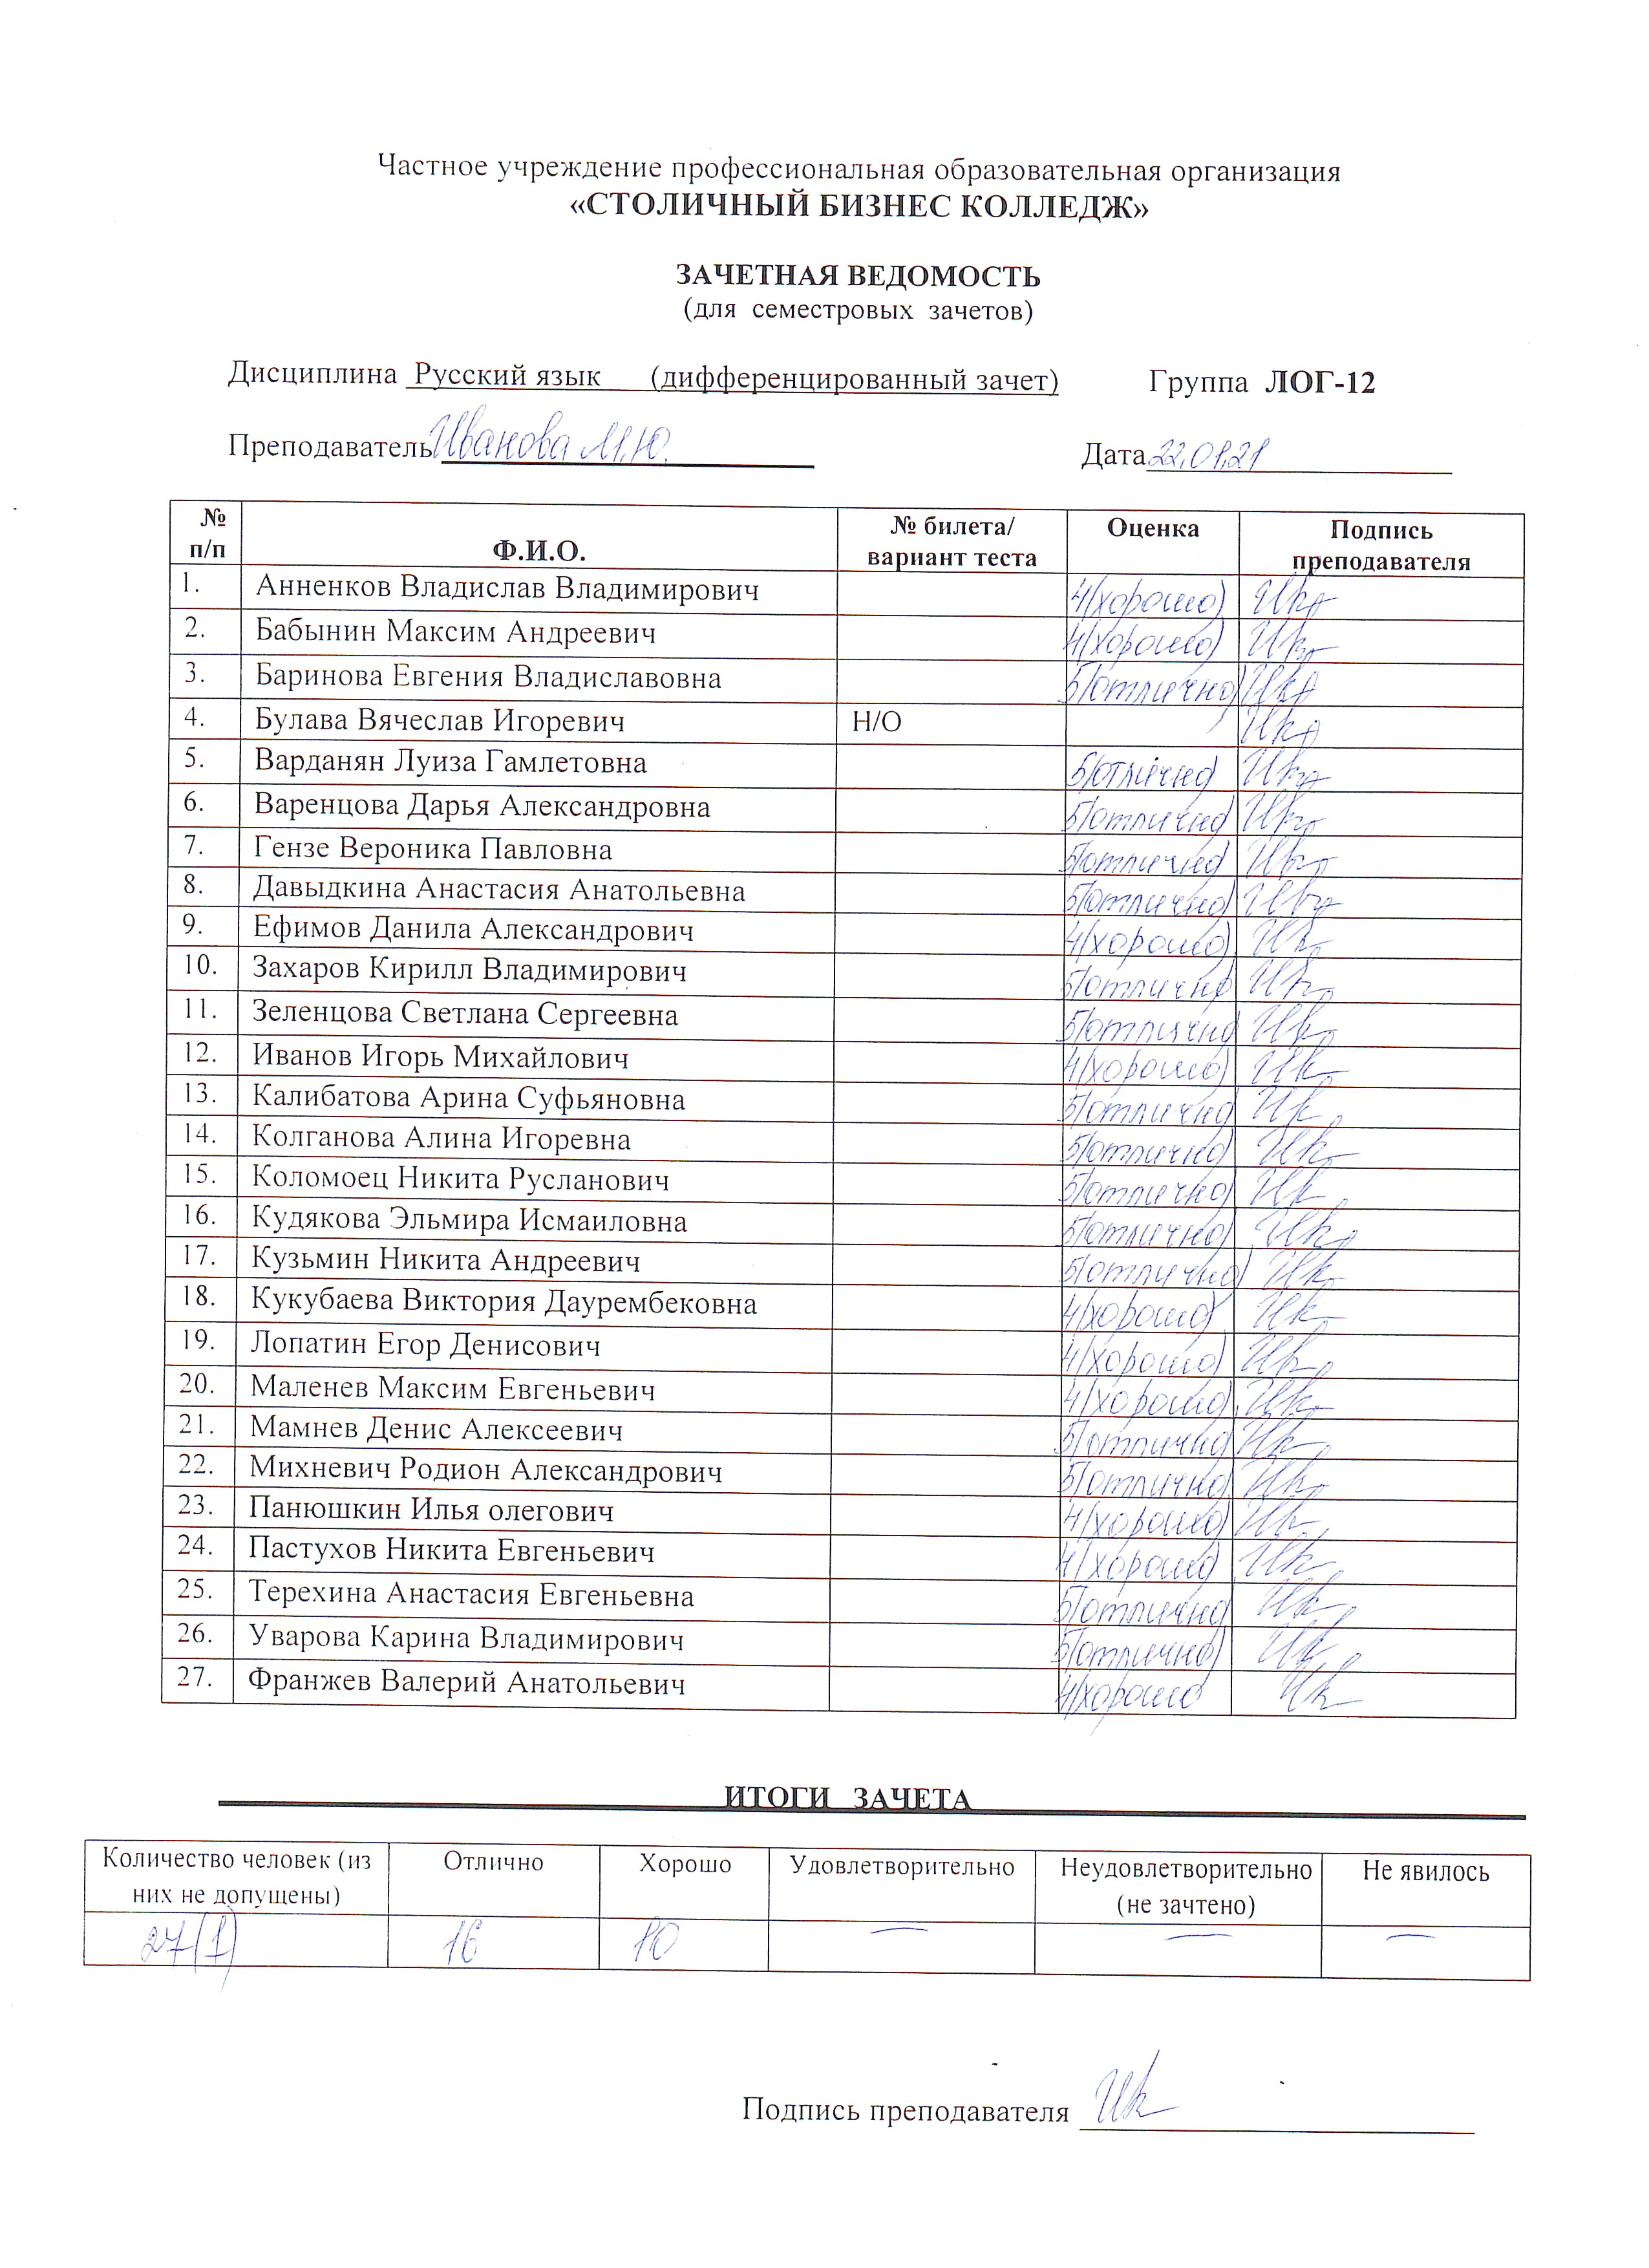 Частное учреждение профессиональная образовательная организация
«СТОЛИЧНЫЙ БИЗНЕС КОЛЛЕДЖ»
ЗАЧЕТНАЯ ВЕДОМОСТЬ
(для семестровых зачетов)
Дисциплина Русский язык (дифференцированный зачет) Группа ЛОГ-12
Преподаватель Иванова М.Ю. Дата 22.01.21
№ п/п Ф.И.О. № билета/ вариант теста Оценка Подпись преподавателя
1. Анненков Владислав Владимирович 4(хорошо)
2. Бабынин Максим Андреевич 4(хорошо)
3. Баринова Евгения Владиславовна 5(отлично)
4. Булава Вячеслав Игоревич Н/О
5. Варданян Луиза Гамлетовна 5(отлично)
6. Варенцова Дарья Александровна 5(отлично)
7. Гензе Вероника Павловна 5(отлично)
8. Давыдкина Анастасия Анатольевна 5(отлично)
9. Ефимов Данила Александрович 4(хорошо)
10. Захаров Кирилл Владимирович 5(отлично)
11. Зеленцова Светлана Сергеевна 5(отлично)
12. Иванов Игорь Михайлович 4(хорошо)
13. Калибатова Арина Суфьяновна 5(отлично)
14. Колганова Алина Игоревна 5(отлично)
15. Коломоец Никита Русланович 5(отлично)
16. Кудякова Эльмира Исмаиловна 5(отлично)
17. Кузьмин Никита Андреевич 5(отлично)
18. Кукубаева Виктория Даурембековна 4(хорошо)
19. Лопатин Егор Денисович 4(хорошо)
20. Маленев Максим Евгеньевич 4(хорошо)
21. Мамнев Денис Алексеевич 5(отлично)
22. Михневич Родион Александрович 5(отлично)
23. Панюшкин Илья олегович 4(хорошо)
24. Пастухов Никита Евгеньевич 4(хорошо)
25. Терехина Анастасия Евгеньевна 5(отлично)
26. Уварова Карина Владимирович 5(отлично)
27. Франжев Валерий Анатольевич 4(хорошо
ИТОГИ ЗАЧЕТА
Количество человек (из них не допущены) Отлично Хорошо Удовлетворительно Неудовлетворительно (не зачтено) Не явилось
27(1) 16 10 — — —
Подпись преподавателя